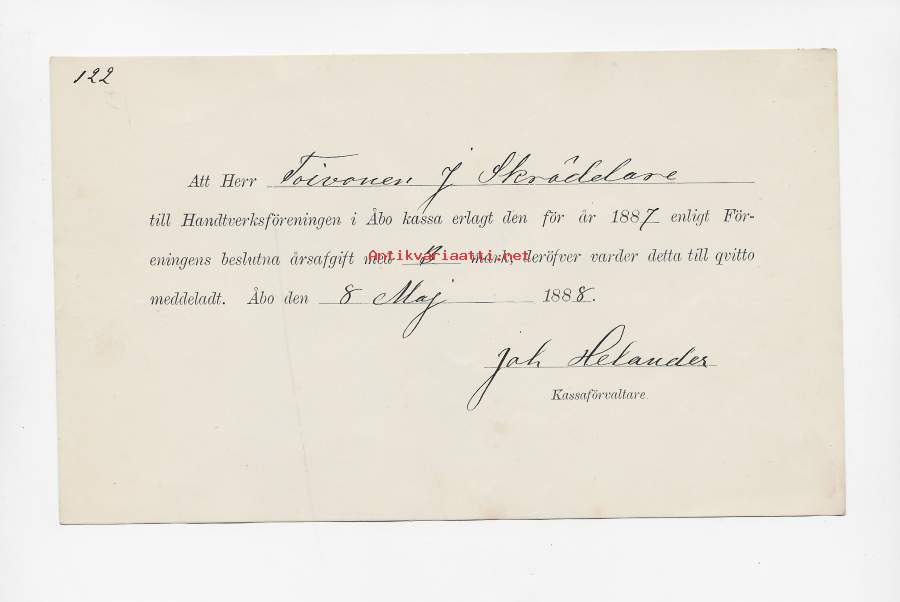 122
Att Herr Toivonen J Skrädelare
till Handtverksföreningen i Åbo kassa erlagt den för år 1887 enligt För-
eningens beslutna årsafgift med mark, deröfver varder detta till qvitto
Antikvariaatti.net
meddeladt. Åbo den 8 Maj 1888.
Joh Helander
Kassaförvaltare.